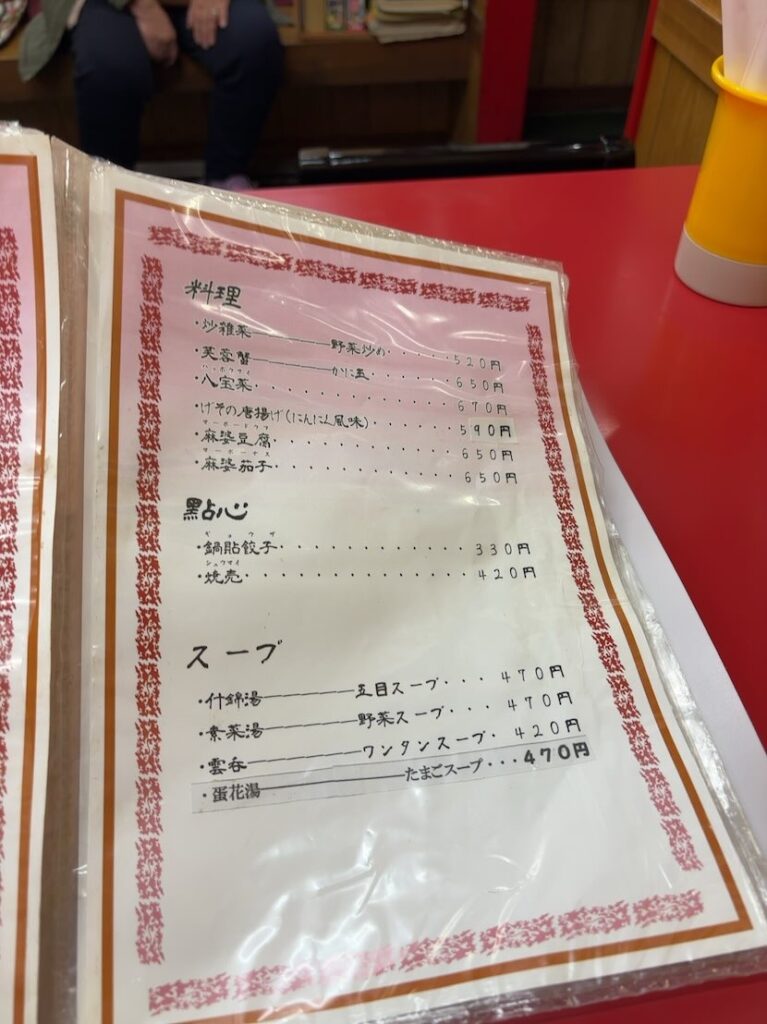 料理
・炒雑菜――――野菜炒め・・・・・520円
・芙蓉蟹――――かに玉・・・・・・650円
ハッポウサイ
・八宝菜・・・・・・・・・・・・・670円
・げその唐揚げ(にんにく風味)・・・・・・590円
マーボードウフ
・麻婆豆腐・・・・・・・・・・・・650円
マーボーナス
・麻婆茄子・・・・・・・・・・・・650円
點心
ギョウザ
・鍋貼餃子・・・・・・・・・・・・330円
シュウマイ
・焼売・・・・・・・・・・・・・・420円
スープ
・什錦湯――――五目スープ・・・470円
・素菜湯――――野菜スープ・・・470円
・雲呑――――ワンタンスープ・420円
・蛋花湯――――たまごスープ・・・470円